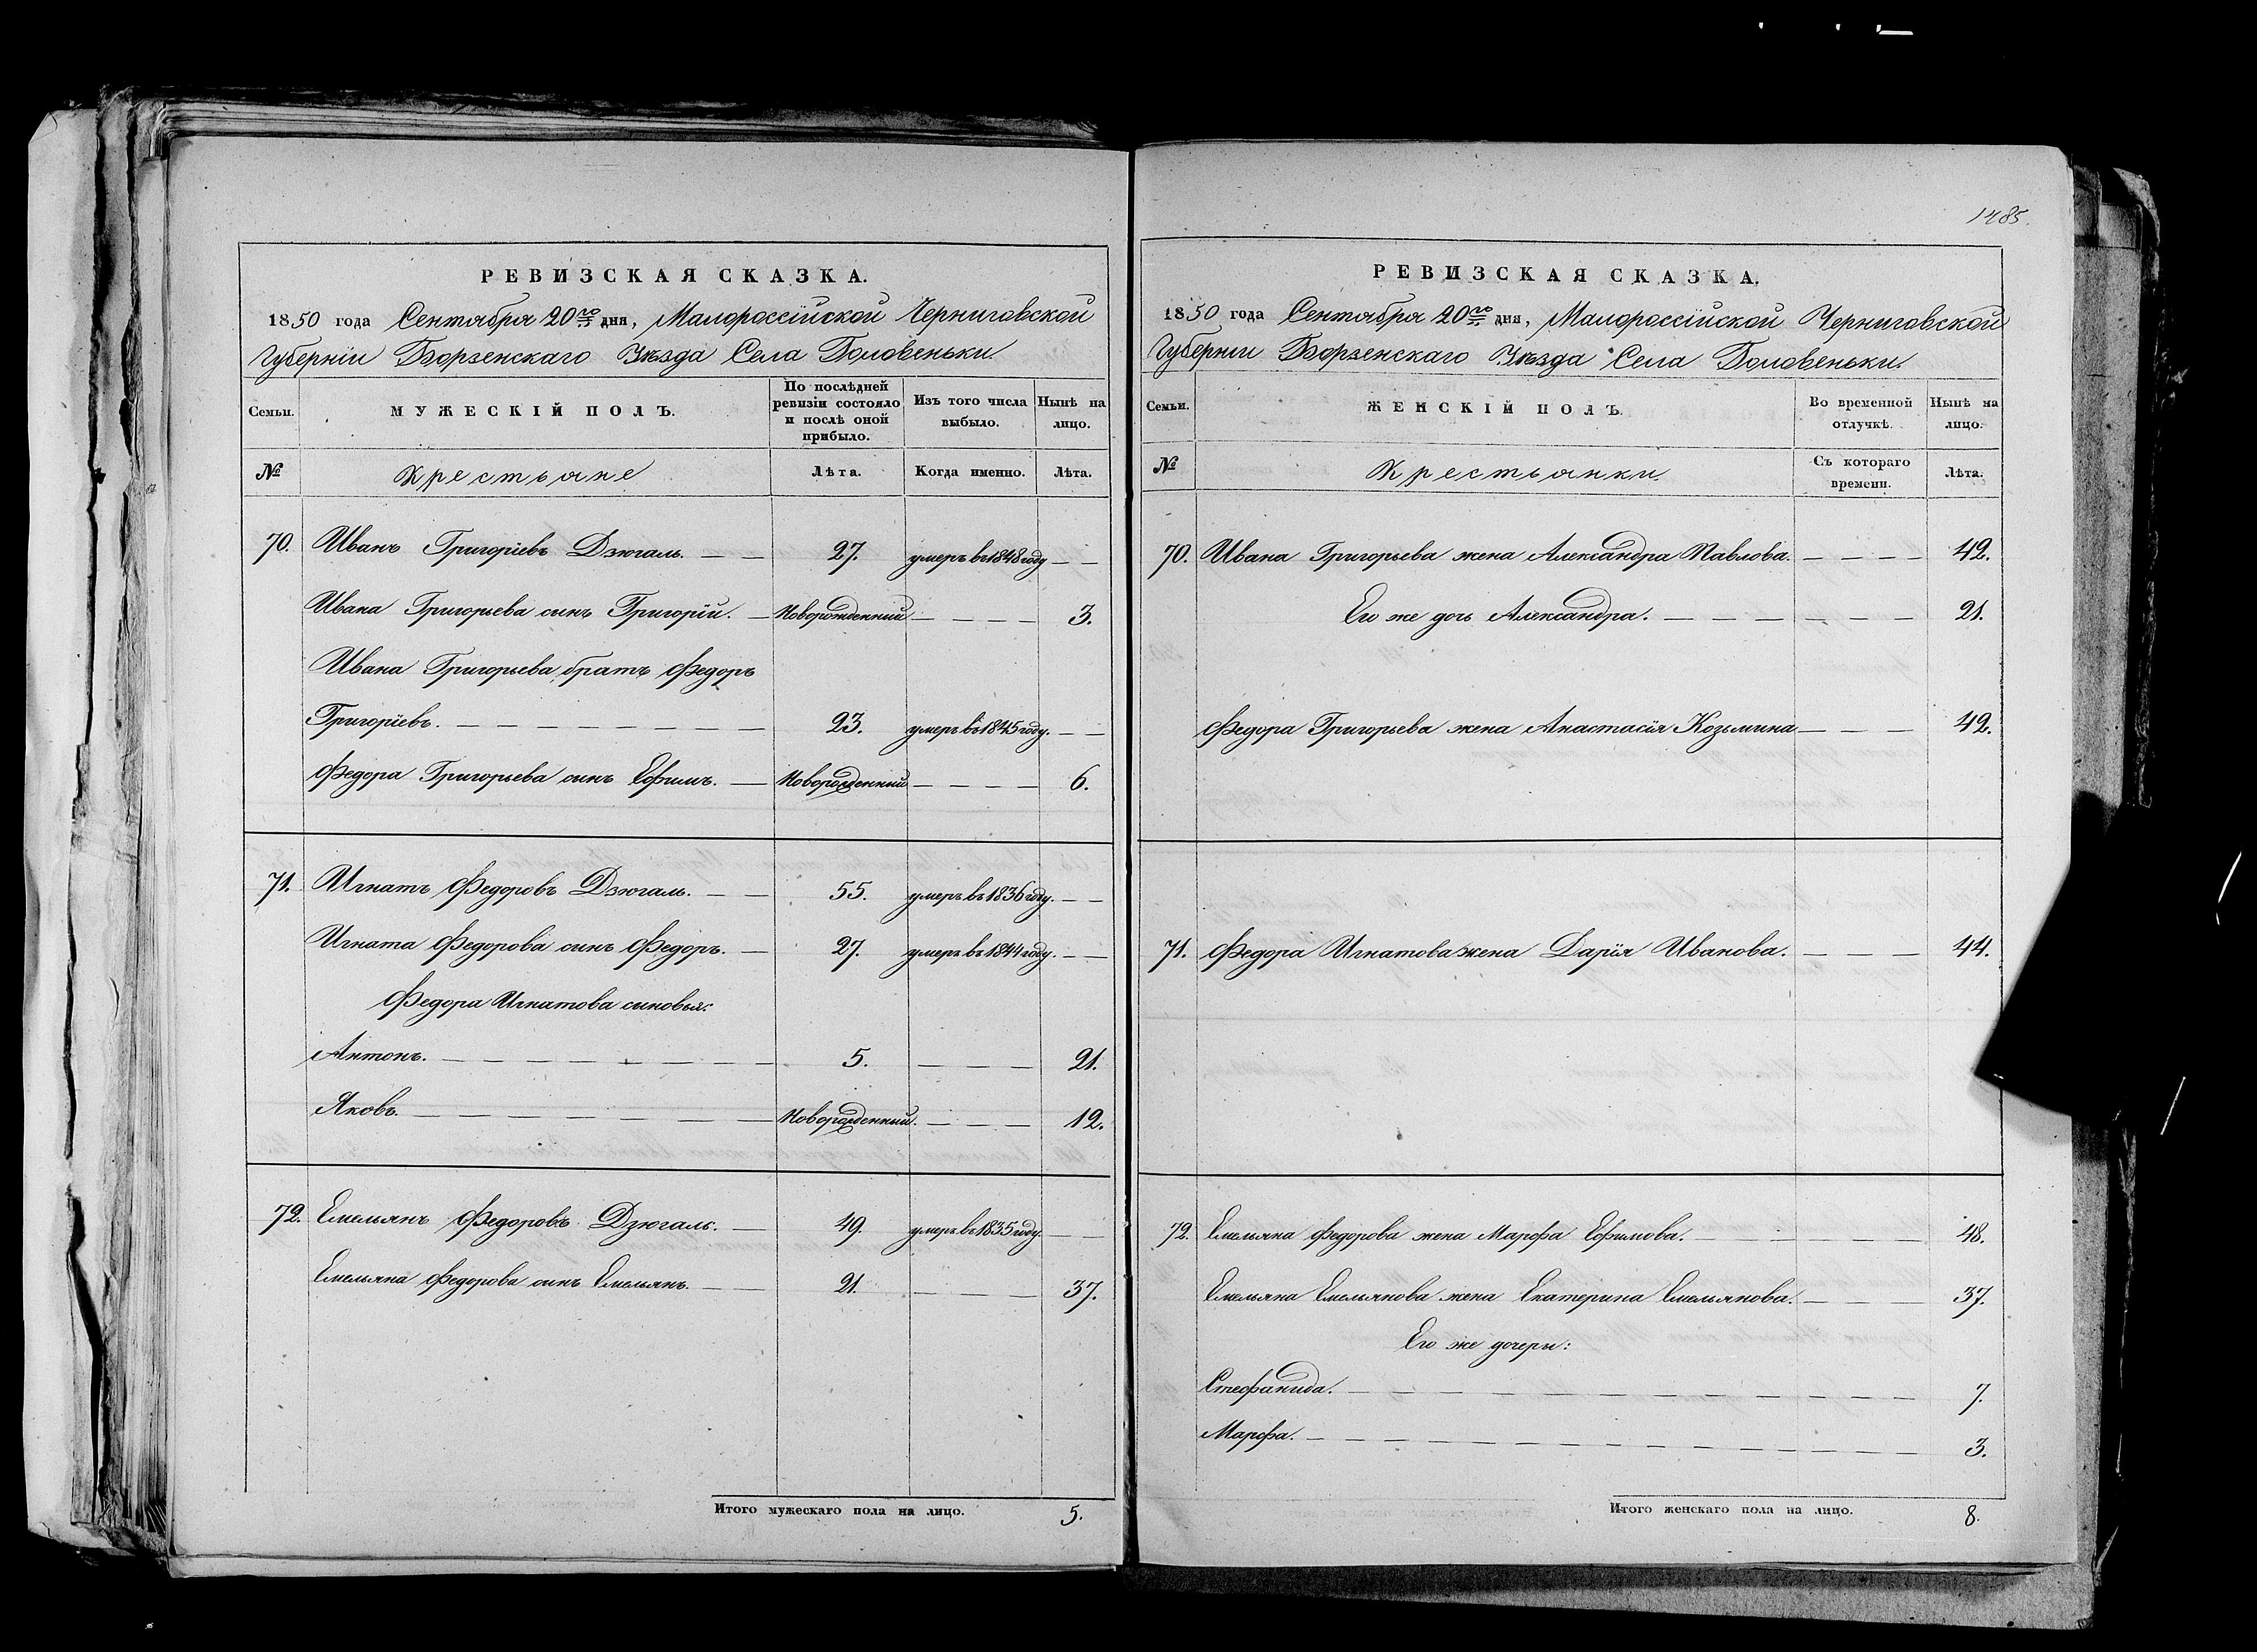 1485.
РЕВИЗСКАЯ СКАЗКА.
1850 года Сентября 20го дня, Малороссійской Черниговской
Губерніи Борзенскаго Уѣзда Села Головеньки.
Семьи. МУЖЕСКІЙ ПОЛЪ. По послѣдней ревизіи состояло и послѣ оной прибыло. Изъ того числа выбыло. Нынѣ на лицо.
№ Крестьяне Лѣта. Когда именно. Лѣта.
70. Иванъ Григоріевъ Дзюгаль. — — 27. умеръ въ 1848 году — —
Ивана Григорьева сынъ Григорій. — Новорожденный — — — — 3.
Ивана Григорьева братъ Федоръ
Григоріевъ. — — — — — — — 23. умеръ въ 1845 году. — —
Федора Григорьева сынъ Ефимъ. — Новорожденный — — — — 6.
71. Игнатъ Федоровъ Дзюгаль. — — 55. умеръ въ 1836 году. — —
Игната Федорова сынъ Федоръ. — 27. умеръ въ 1844 году. — —
Федора Игнатова сыновья:
Антонъ. — — — — — — — 5. — — — — 21.
Яковъ. — — — — — — — Новорожденный. — — — — 12.
72. Емельянъ Федоровъ Дзюгаль. — 49. умеръ въ 1835 году. — —
Емельяна Федорова сынъ Емельянъ. — — 21. — — — — 37.
Итого мужескаго пола на лицо. 5.
РЕВИЗСКАЯ СКАЗКА.
1850 года Сентября 20го дня, Малороссійской Черниговской
Губерніи Борзенскаго Уѣзда Села Головеньки.
Семьи. ЖЕНСКІЙ ПОЛЪ. Во временной отлучкѣ. Нынѣ на лицо.
№ Крестьянки. Съ котораго времени. Лѣта.
70. Ивана Григорьева жена Александра Павлова. — — — — 42.
Его же дочь Александра. — — — — — — 21.
Федора Григорьева жена Анастасія Козьмина — — — 42.
71. Федора Игнатова жена Дарія Иванова. — — — — 44.
72. Емельяна Федорова жена Марфа Ефимова. — — — — — 48.
Емельяна Емельянова жена Екатерина Емельянова. — — — 37.
Его же дочери:
Стефанида. — — — — — — — — — — 7.
Марфа. — — — — — — — — — — 3.
Итого женскаго пола на лицо. 8.